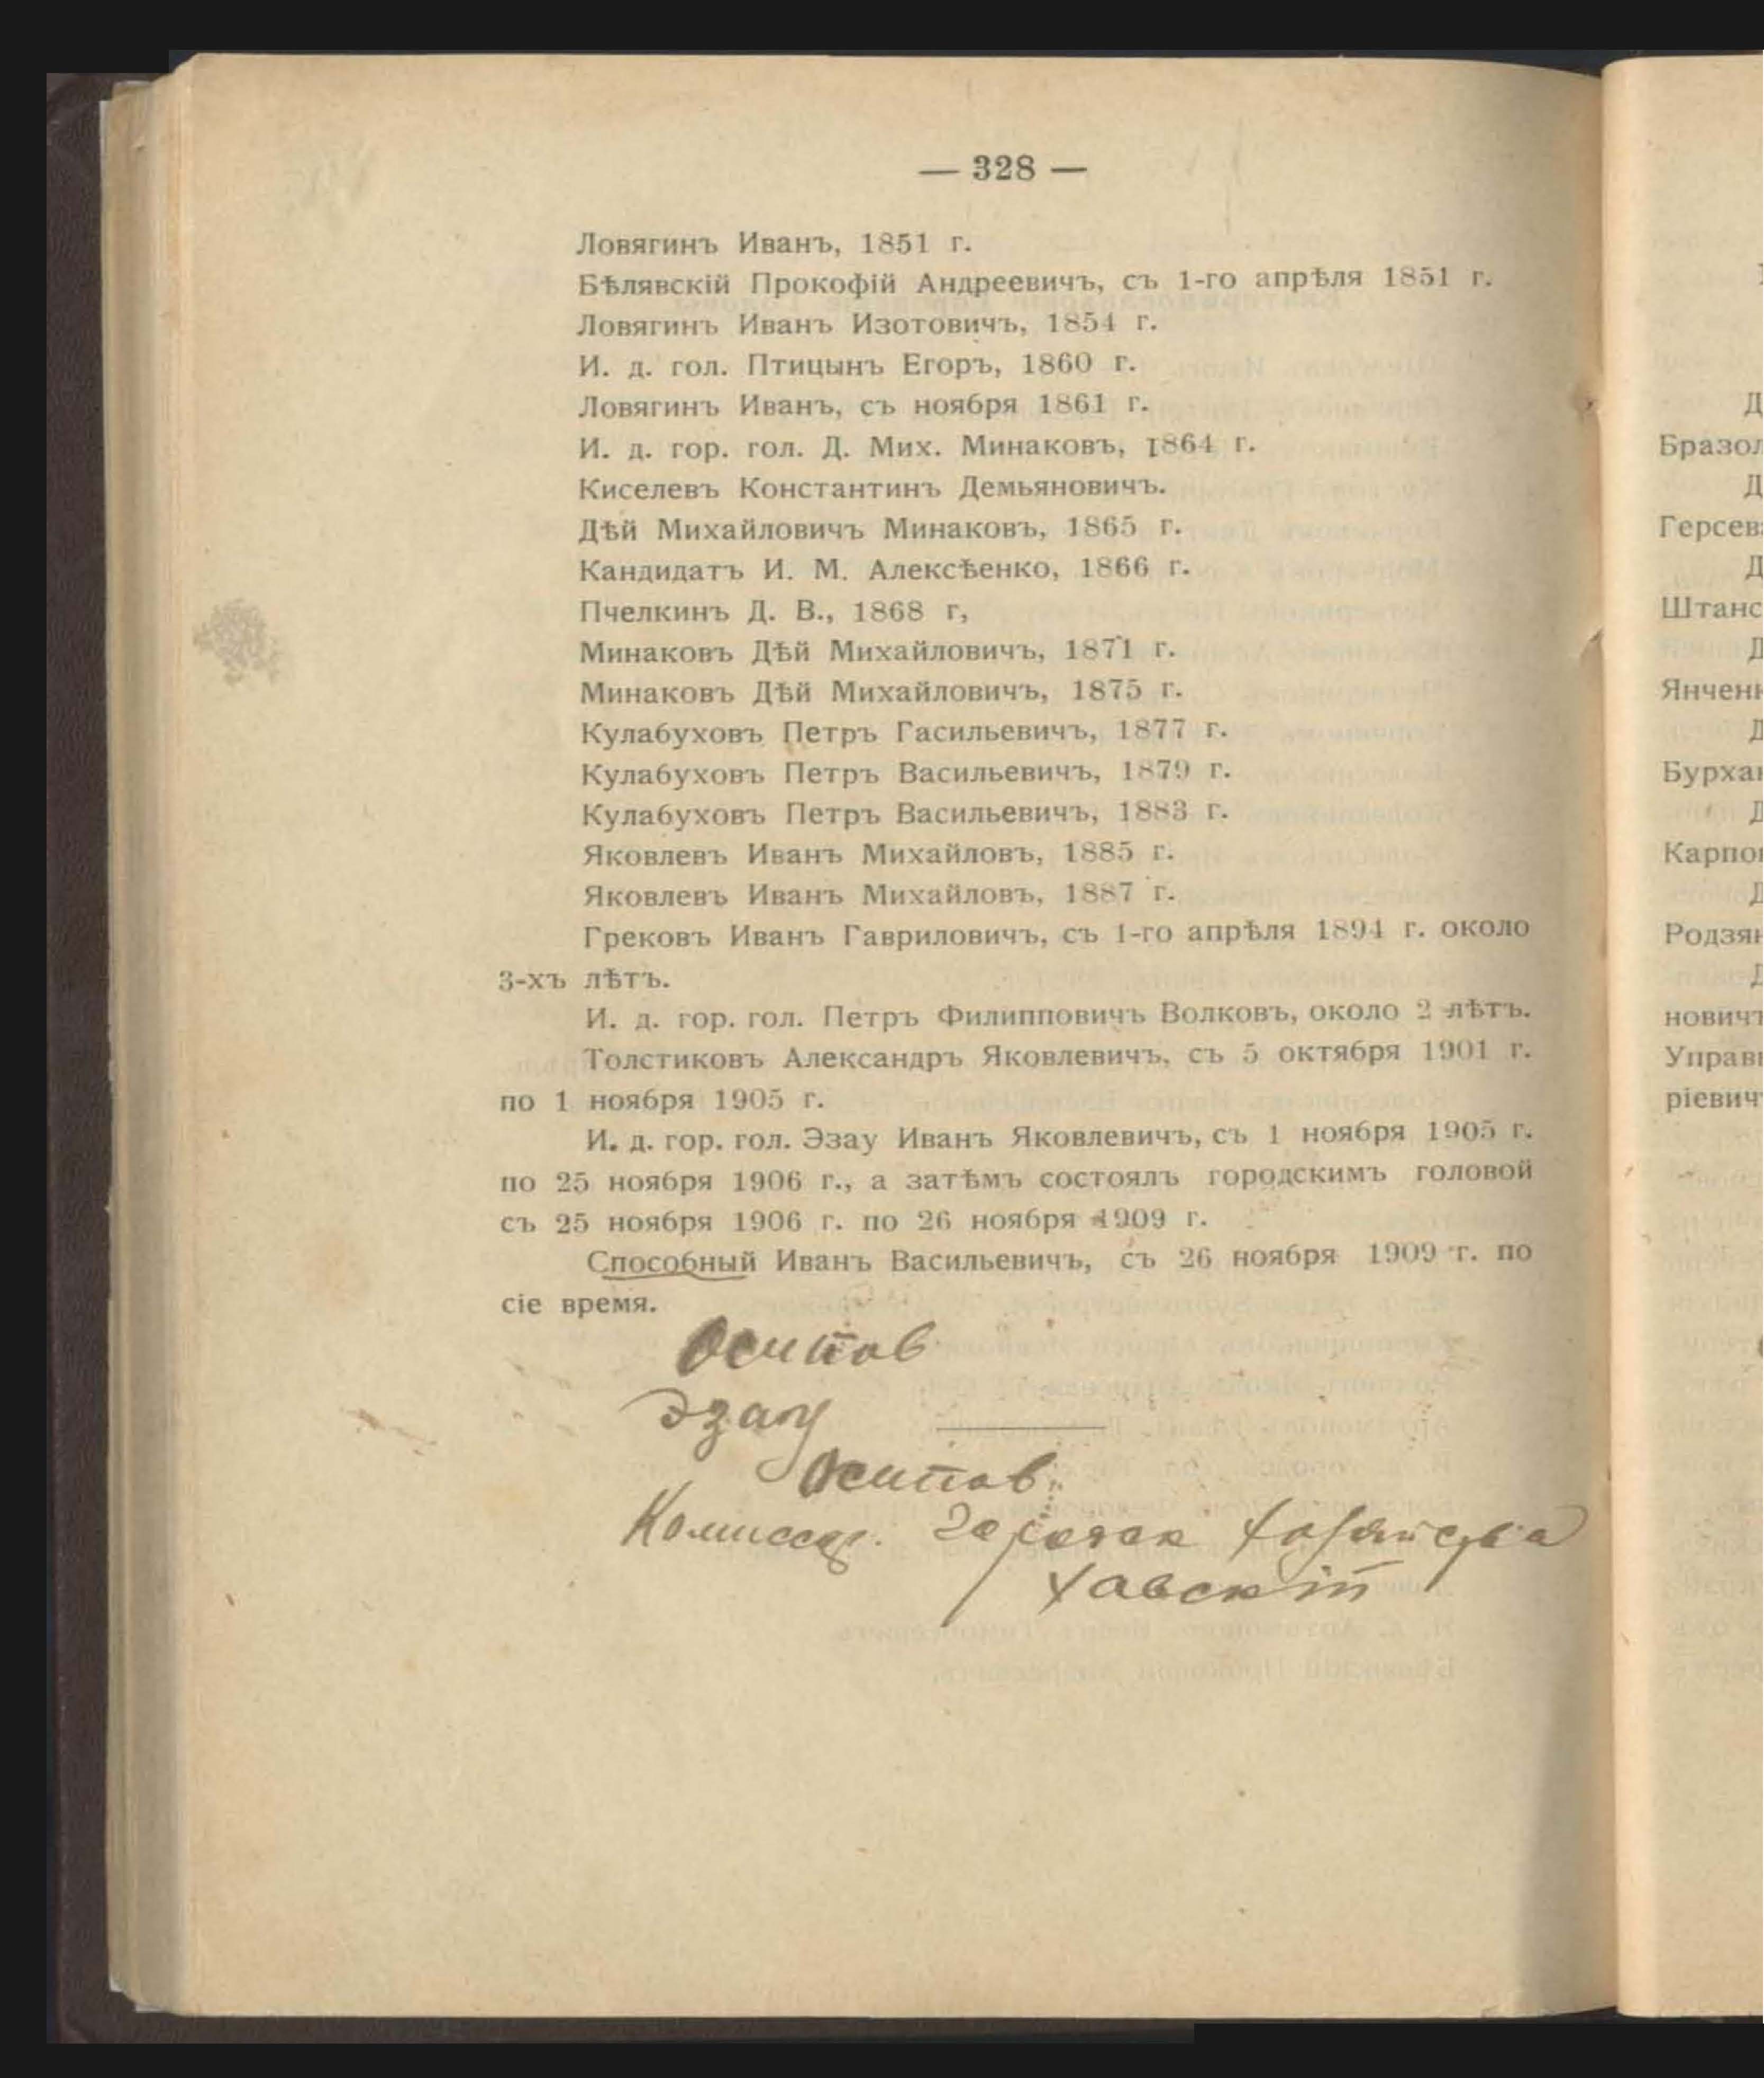 — 328 —
Ловягинъ Иванъ, 1851 г.
Бѣлявскій Прокофій Андреевичъ, съ 1-го апрѣля 1851 г.
Ловягинъ Иванъ Изотовичъ, 1854 г.
И. д. гол. Птицынъ Егоръ, 1860 г.
Ловягинъ Иванъ, съ ноября 1861 г.
И. д. гор. гол. Д. Мих. Минаковъ, 1864 г.
Киселевъ Константинъ Демьяновичъ.
Дѣй Михайловичъ Минаковъ, 1865 г.
Кандидатъ И. М. Алексѣенко, 1866 г.
Пчелкинъ Д. В., 1868 г,
Минаковъ Дѣй Михайловичъ, 1871 г.
Минаковъ Дѣй Михайловичъ, 1875 г.
Кулабуховъ Петръ Гасильевичъ, 1877 г.
Кулабуховъ Петръ Васильевичъ, 1879 г.
Кулабуховъ Петръ Васильевичъ, 1883 г.
Яковлевъ Иванъ Михайловъ, 1885 г.
Яковлевъ Иванъ Михайловъ, 1887 г.
Грековъ Иванъ Гавриловичъ, съ 1-го апрѣля 1894 г. около
3-хъ лѣтъ.
И. д. гор. гол. Петръ Филипповичъ Волковъ, около 2 лѣтъ.
Толстиковъ Александръ Яковлевичъ, съ 5 октября 1901 г.
по 1 ноября 1905 г.
И. д. гор. гол. Эзау Иванъ Яковлевичъ, съ 1 ноября 1905 г.
по 25 ноября 1906 г., а затѣмъ состоялъ городскимъ головой
съ 25 ноября 1906 г. по 26 ноября 1909 г.
Способный Иванъ Васильевичъ, съ 26 ноября 1909 г. по
сіе время.
Осипов
Эзау
Осипов
Комиссар. хозяйства
Д
Бразол
Д
Герсев
Д
Штанс
Д
Янчен
Д
Бурха
Д
Карпо
Д
Родзя
Д
нович
Управ
ріевич